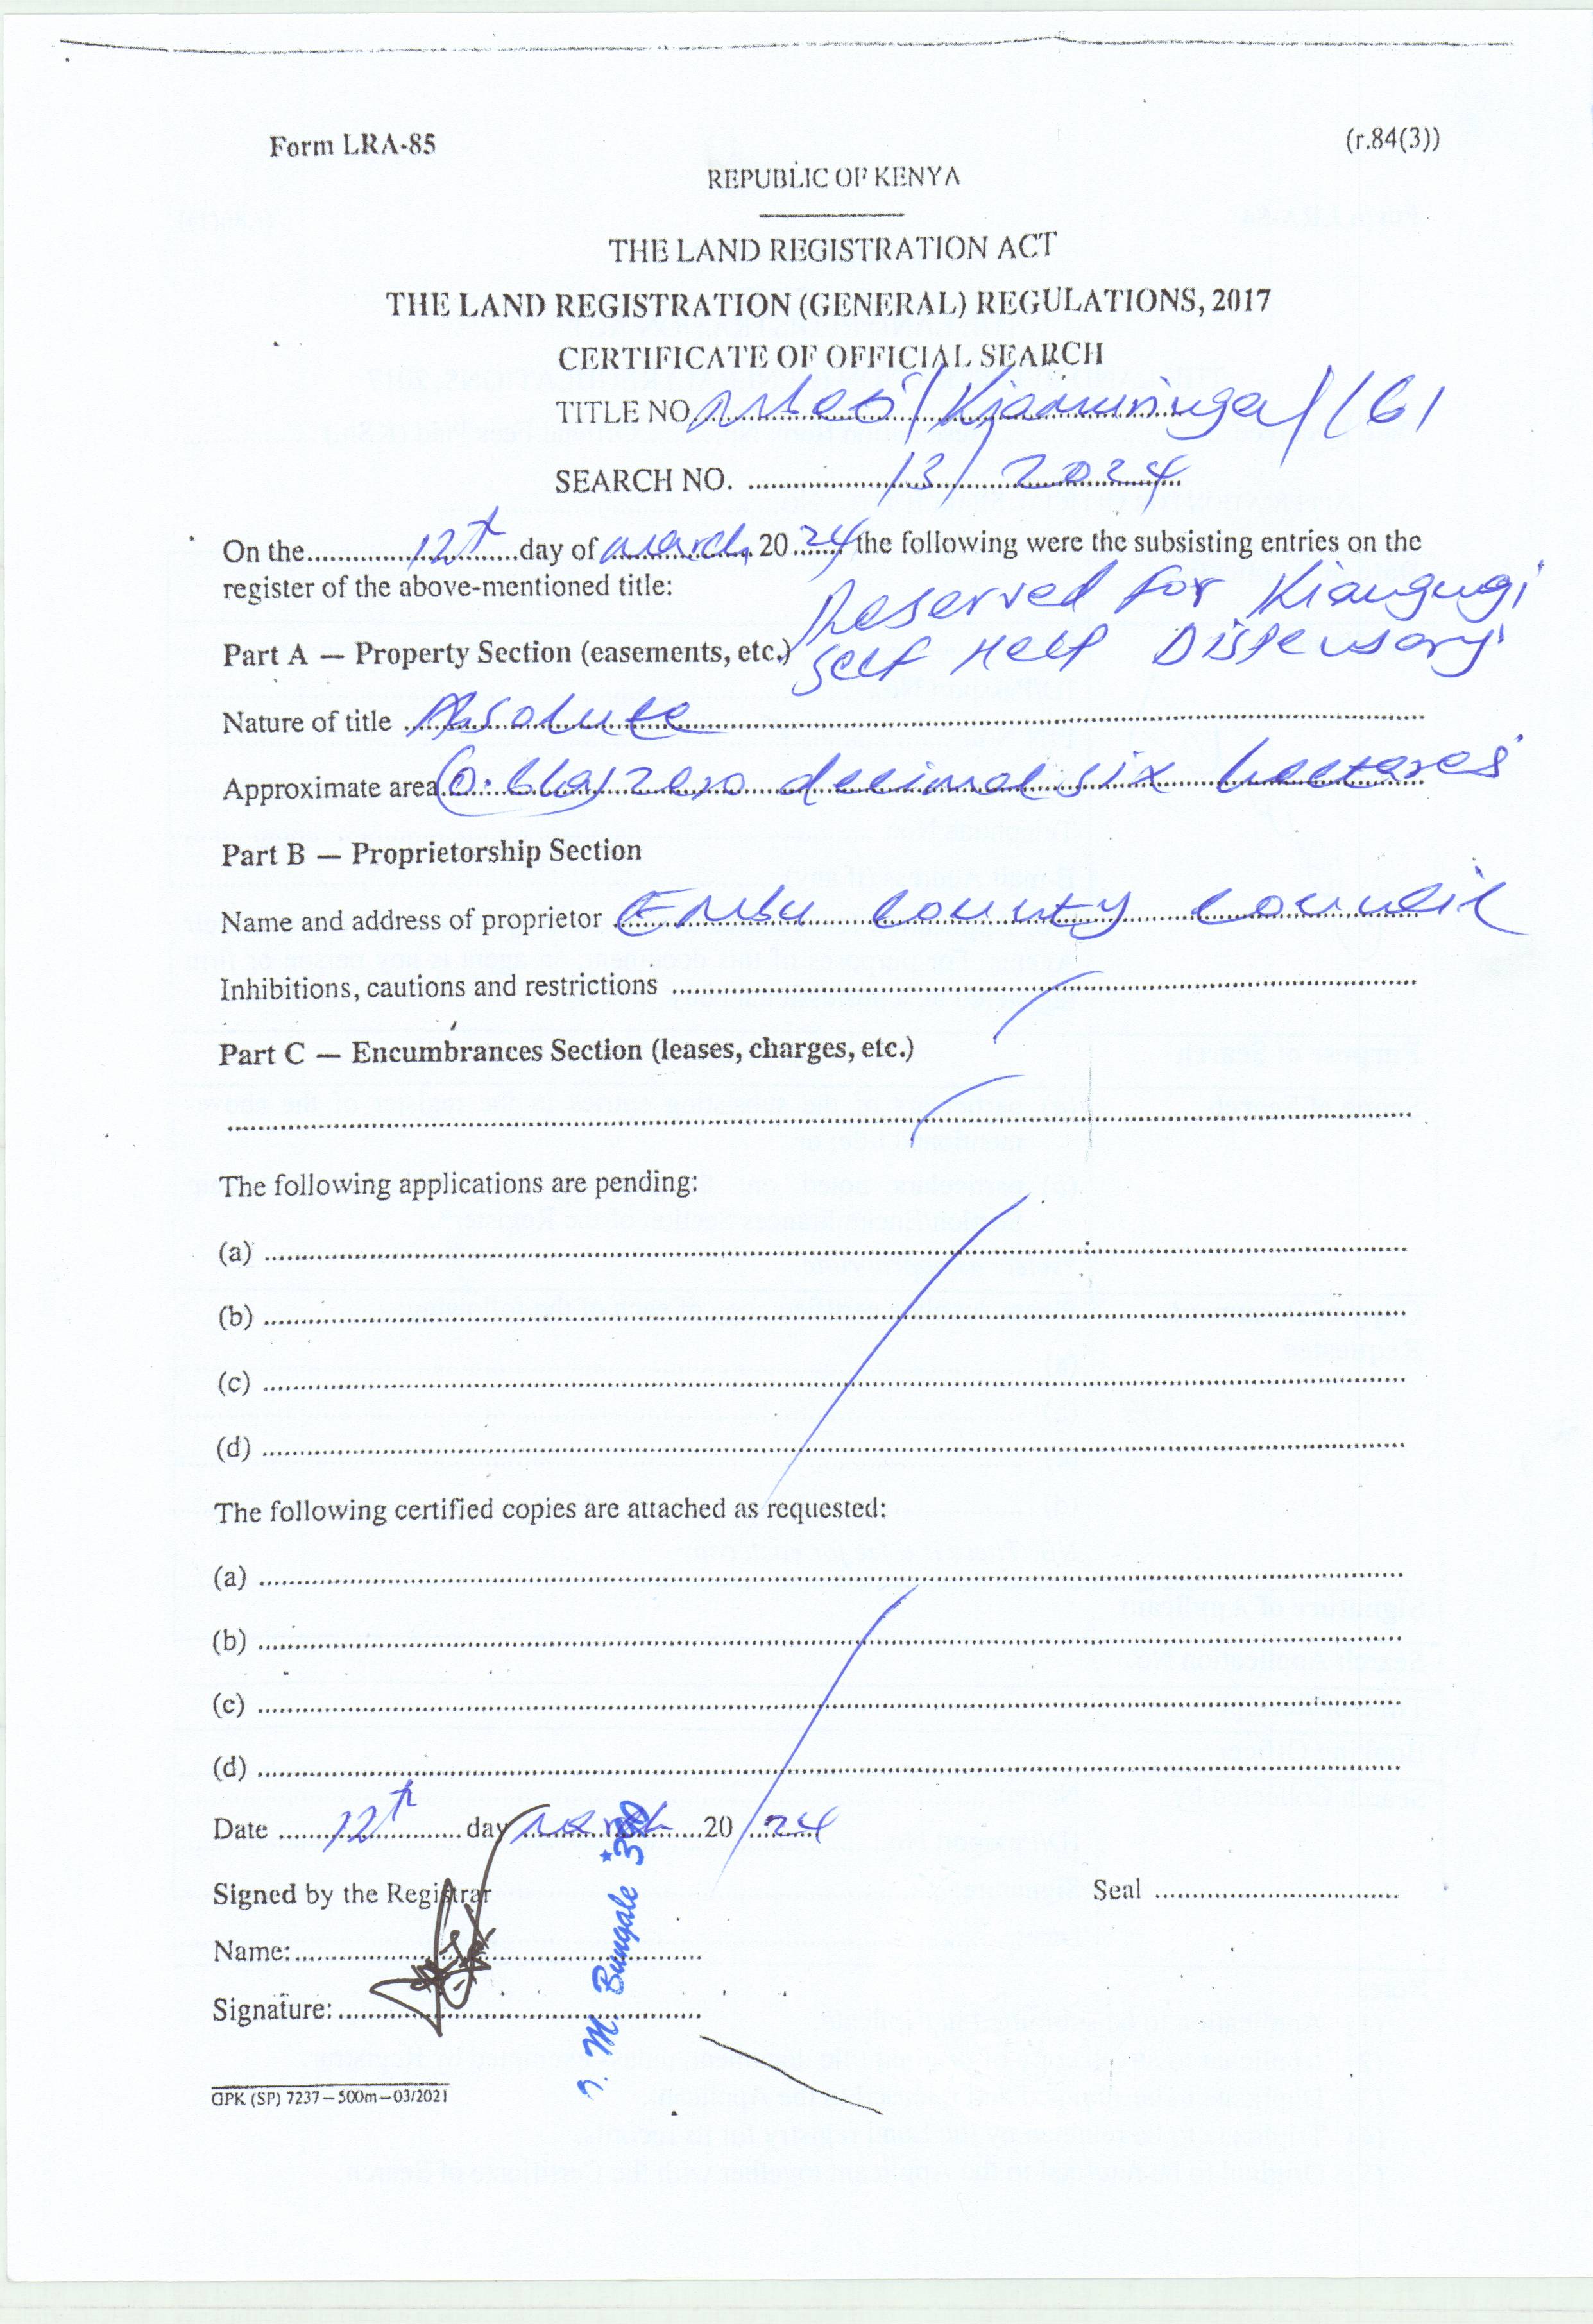 Form LRA-85
(r.84(3))
REPUBLIC OF KENYA
THE LAND REGISTRATION ACT
THE LAND REGISTRATION (GENERAL) REGULATIONS, 2017
CERTIFICATE OF OFFICIAL SEARCH
TITLE NO. Mbeti/Kiamuringa/161
SEARCH NO. 13/2024
On the 12th day of march 20 24 the following were the subsisting entries on the
register of the above-mentioned title:
Reserved for Kiangugi
Part A — Property Section (easements, etc.) Self Help Dispensary
Nature of title Absolute
Approximate area (0.6ha) zero decimal six hectares
Part B — Proprietorship Section
Name and address of proprietor Embu County Council
Inhibitions, cautions and restrictions
Part C — Encumbrances Section (leases, charges, etc.)
The following applications are pending:
(a)
(b)
(c)
(d)
The following certified copies are attached as requested:
(a)
(b)
(c)
(d)
Date 12th day march 20 24
Signed by the Registrar
Seal
Name:
Signature:
M. Bungale
GPK (SP) 7237—500m—03/2021